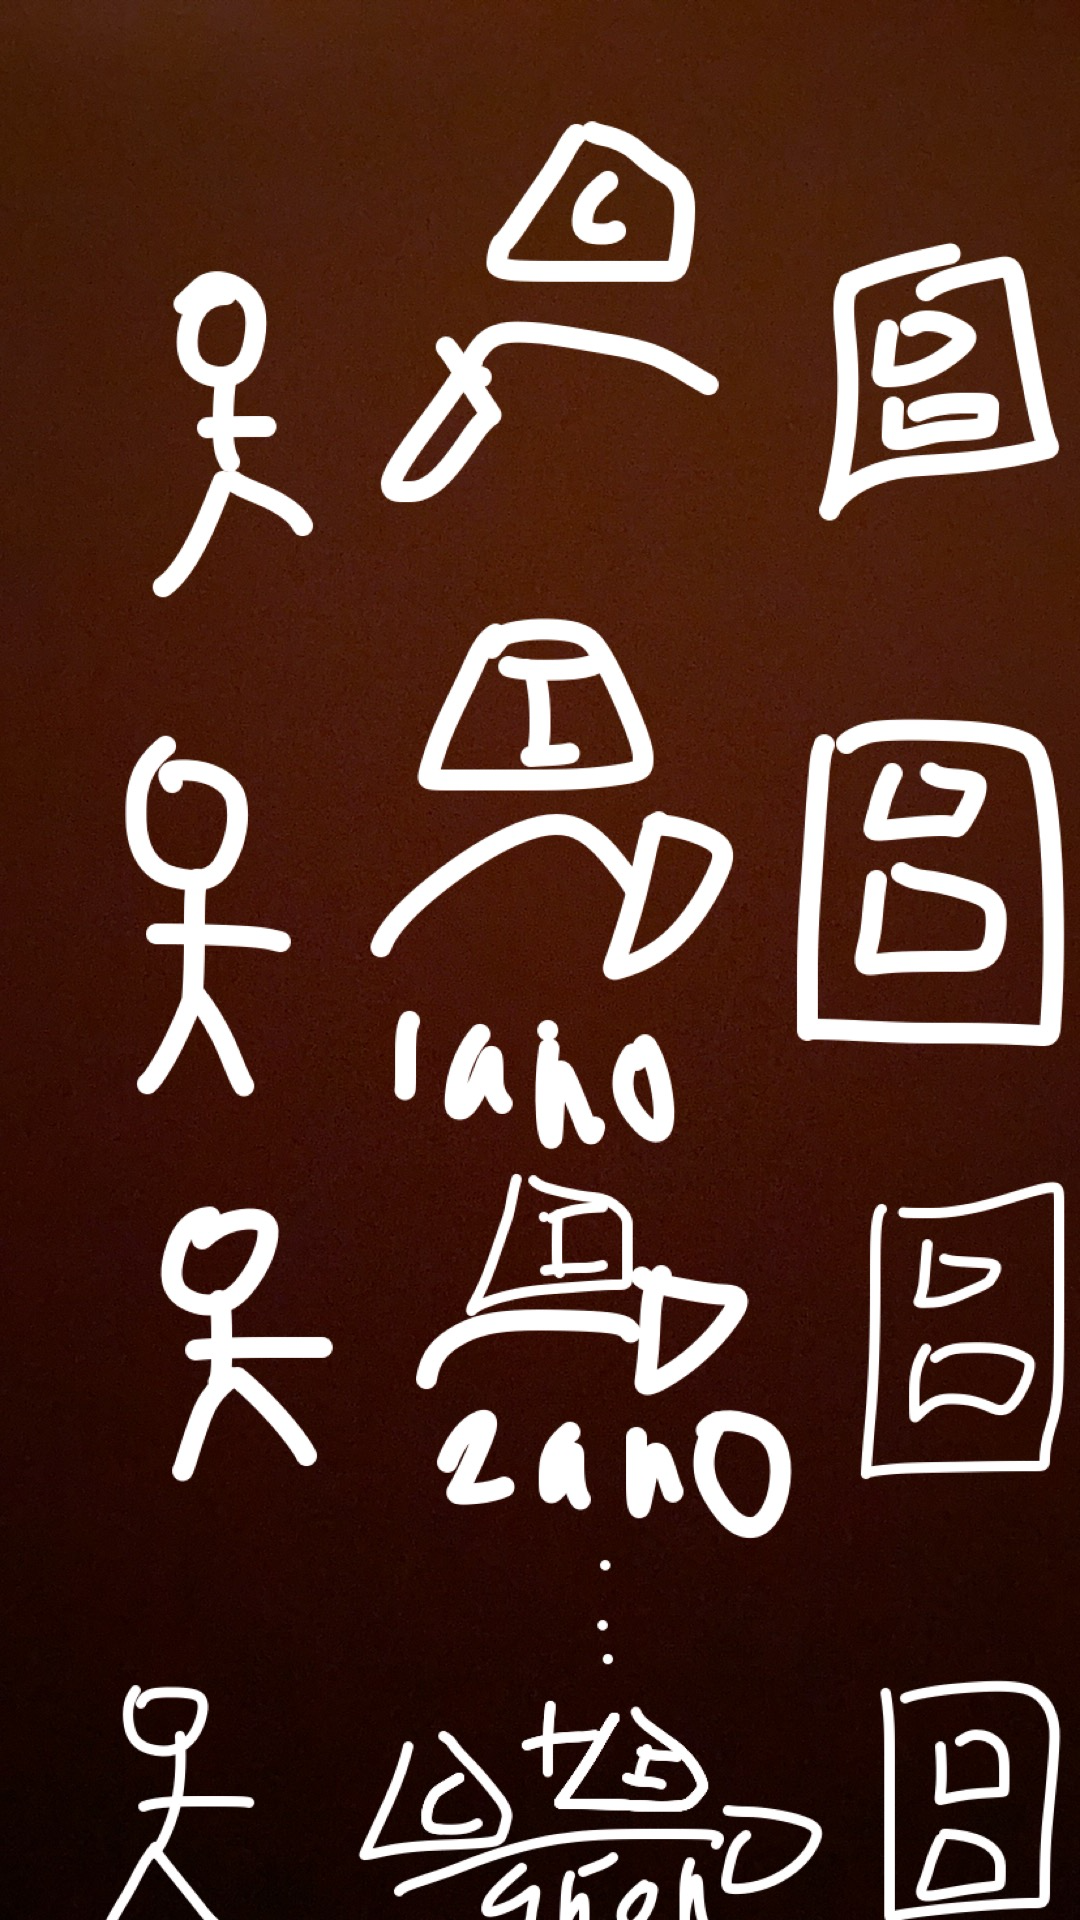 C
I
1 ano
I
2 ano
C + I